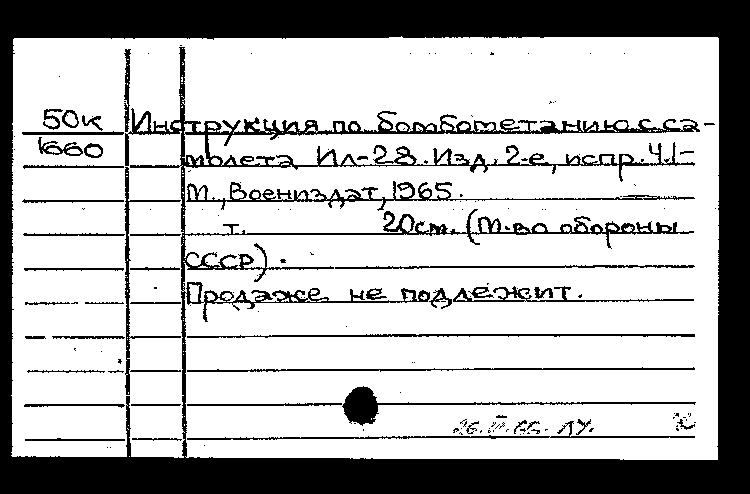 50к Инструкция по бомбометанию с са-
1660 молета Ил-28. Изд. 2-е, испр. Ч.1-
М., Воениздат, 1965.
т. 20см. (М-во обороны
СССР).
Продаже не подлежит.